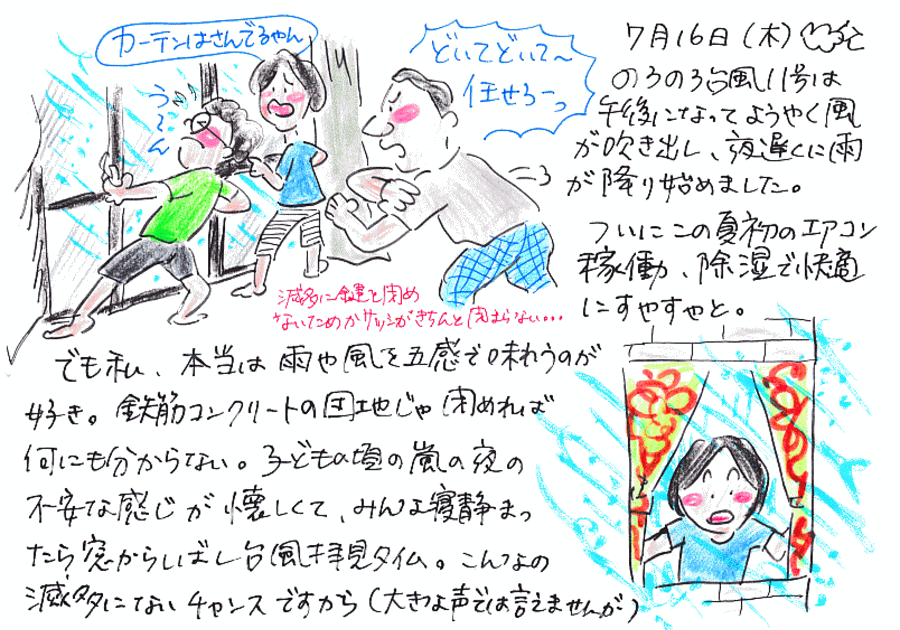 カーテンはさんでるやん
どいてどいて～
任せろーっ
う～ん
滅多に鍵と閉め
ないためかサッシがきちんと閉まらない...
7月16日(木)
のろのろ台風11号は
午後になってようやく風
が吹き出し、夜遅くに雨
が降り始めました。
ついにこの夏初のエアコン
稼働、除湿で快適
にすやすやと。
でも私、本当は雨や風を五感で味わうのが
好き。鉄筋コンクリートの団地じゃ閉めれば
何にも分からない。子どもの頃の嵐の夜の
不安な感じが懐しくて、みんな寝静まっ
たら窓からしばし台風拝見タイム。こんなの
滅多にないチャンスですから(大きな声では言えませんが)